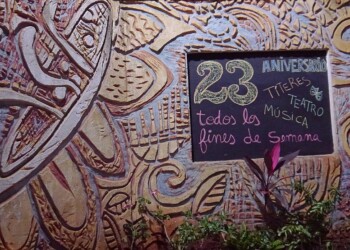 23 ANIVERSARIO
TITERES
TEATRO
MÚSICA
todos los
fines de Semana